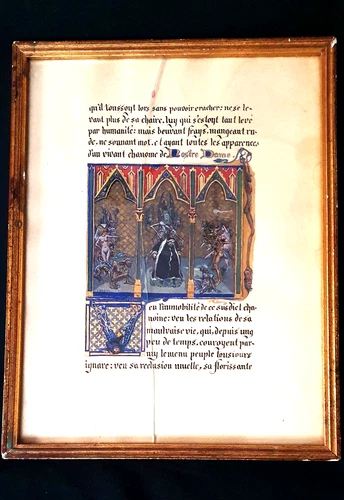 qu'il toussoyt lors sans pouvoir cracher: ne se le-
vant plus de sa chaire, luy qui s'estoyt tant levé
par humanité: mais beuvant frays, mangeant ru-
de, ne sonnant mot, et ayant toutes les apparences
d'un vivant chanoine de Nostre Dame.
eu l'immobilité de ce susdict cha-
noine: veu les relations de sa
maulvaise vie, qui, depuis ung
peu de temps, couroyent par-
my le menu peuple tousiours
ignare: veu sa reclusion muette, sa florissante